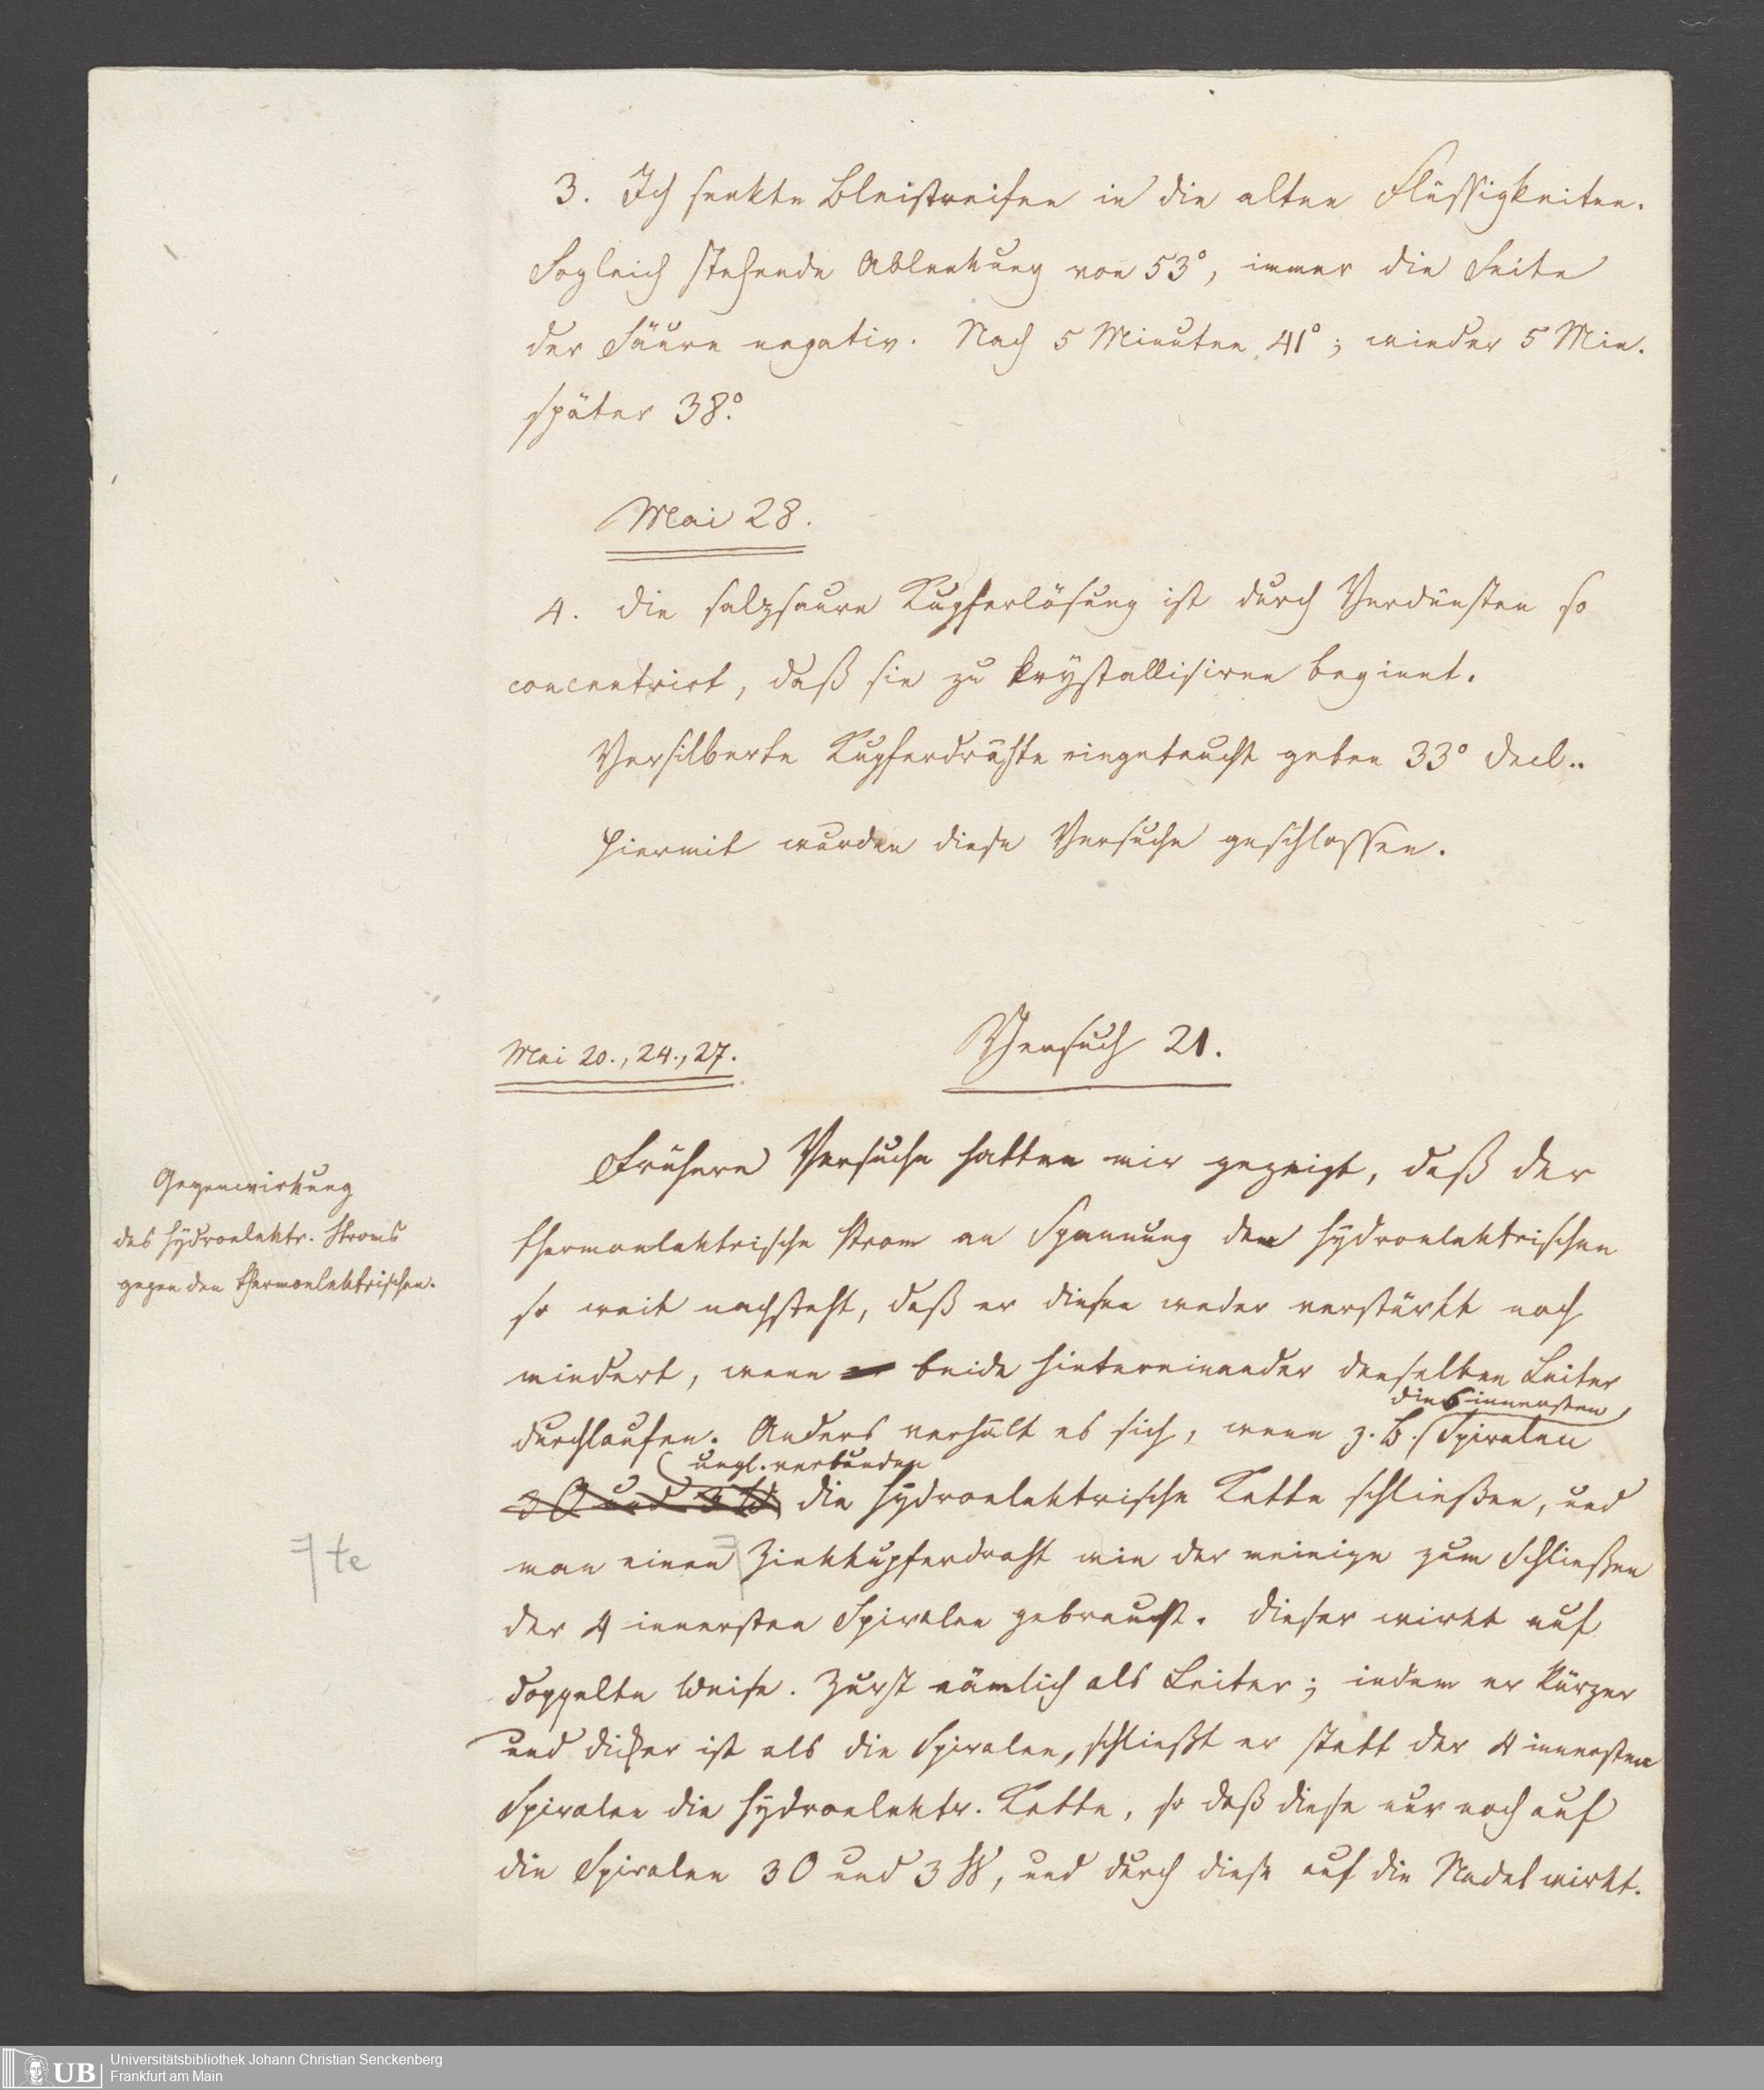 3. Ich senkte Bleistreifen in die alten Flüssigkeiten.
Sogleich stehende Ablenkung von 53°, immer die Seite
der Säure negativ. Nach 5 Minuten 41°; wieder 5 Min.
später 38°.
Mai 28.
4. Die salzsaure Kupferlösung ist durch Verdünsten so
concentrirt, daß sie zu krystallisiren beginnt.
Versilberte Kupferdrähte eingetaucht geben 33° Decl..
Hiermit wurden diese Versuche geschlossen.
Mai 20., 24., 27.
Versuch 21.
Gegenwirkung
des hydroelektr. Stroms
gegen den thermoelektrischen.
Frühere Versuche hatten mir gezeigt, daß der
thermoelektrische Strom an Spannung dem hydroelektrischen
so weit nachsteht, daß er diesen weder verstärkt noch
mindert, wenn er beide hintereinander denselben Leiter
die 6 innersten
durchlaufen. Anders verhält es sich, wenn z. B. Spiralen
ungl. verbunden
3 O und 3 W die hydroelektrische Kette schließen, und
man einen Zinkkupferdraht wie der meinige zum Schließen
te
der 4 innersten Spiralen gebraucht. Dieser wirkt auf
doppelte Weise. Zurst nämlich als Leiter; indem er kürzer
und dicker ist als die Spiralen, schließt er statt der 4 innersten
Spiralen die hydroelektr. Kette, so daß diese nur noch auf
die Spiralen 3 O und 3 W, und durch diese auf die Nadel wirkt.
UB
Universitätsbibliothek Johann Christian Senckenberg
Frankfurt am Main